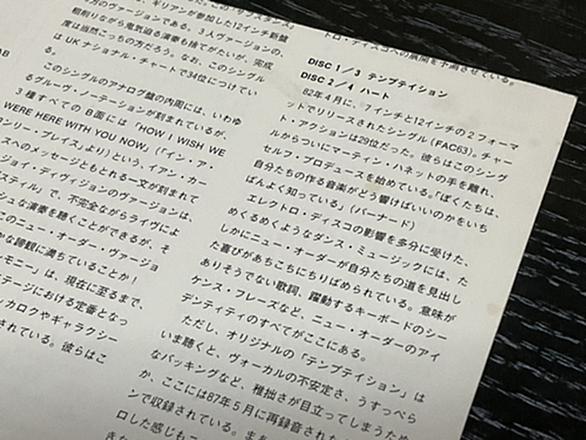 ギリアンが参加した12インチ新盤
方のヴァージョンである。3人ヴァージョンの、
粗削りながら鬼気迫る演奏も捨てがたいが、完成
度は当然こっちの方だろう。なお、このシングル
は UK ナショナル・チャートで34位につけてい
る。
このシングルのアナログ盤の内周には、いわゆ
るグルーヴ・ノーテーションが刻まれているが、
3種すべてのB面には「HOW I WISH WE
WERE HERE WITH YOU NOW」(「イン・ア・
ンリー・プレイス」より)という、イアン・カー
スへのメッセージともとれる一文が刻まれて
ジョイ・ディヴィジョンのヴァージョンは、
スティル」で、不完全ながらライヴによ
シュな演奏を聴くことができるが、そ
このニュー・オーダー・ヴァージョ
かな諦観に満ちていることか!
モニー」は、現在に至るまで
ステージにおける定番となっ
ッカロクやギャラクシー
されている。彼らはこ
トロ・ディスコへの展開を予測させている。
DISC 1/3 テンプテイション
DISC 2/4 ハート
82年4月に、7インチと12インチの2フォーマ
ットでリリースされたシングル(FAC63)。チャー
ト・アクションは29位だった。彼らはこのシング
ルからついにマーティン・ハネットの手を離れ、
セルフ・プロデュースを始めている。「ぼくたちは、
自分たちの作る音楽がどう響けばいいのかをいち
ばんよく知っている」(バーナード)
エレクトロ・ディスコの影響を多分に受けた、
めくるめくようなダンス・ミュージックには、た
しかにニュー・オーダーが自分たちの道を見出し
た喜びがあちこちにちりばめられている。意味が
ありそうでない歌詞、躍動するキーボードのシー
ケンス・フレーズなど、ニュー・オーダーのアイ
デンティティのすべてがここにある。
ただし、オリジナルの「テンプテイション」は
いま聴くと、ヴォーカルの不安定さ、うすっぺら
なバッキングなど、稚拙さが目立ってしまうため
か、ここには87年5月に再録音された
ンで収録されている。まあ
ロした感じも